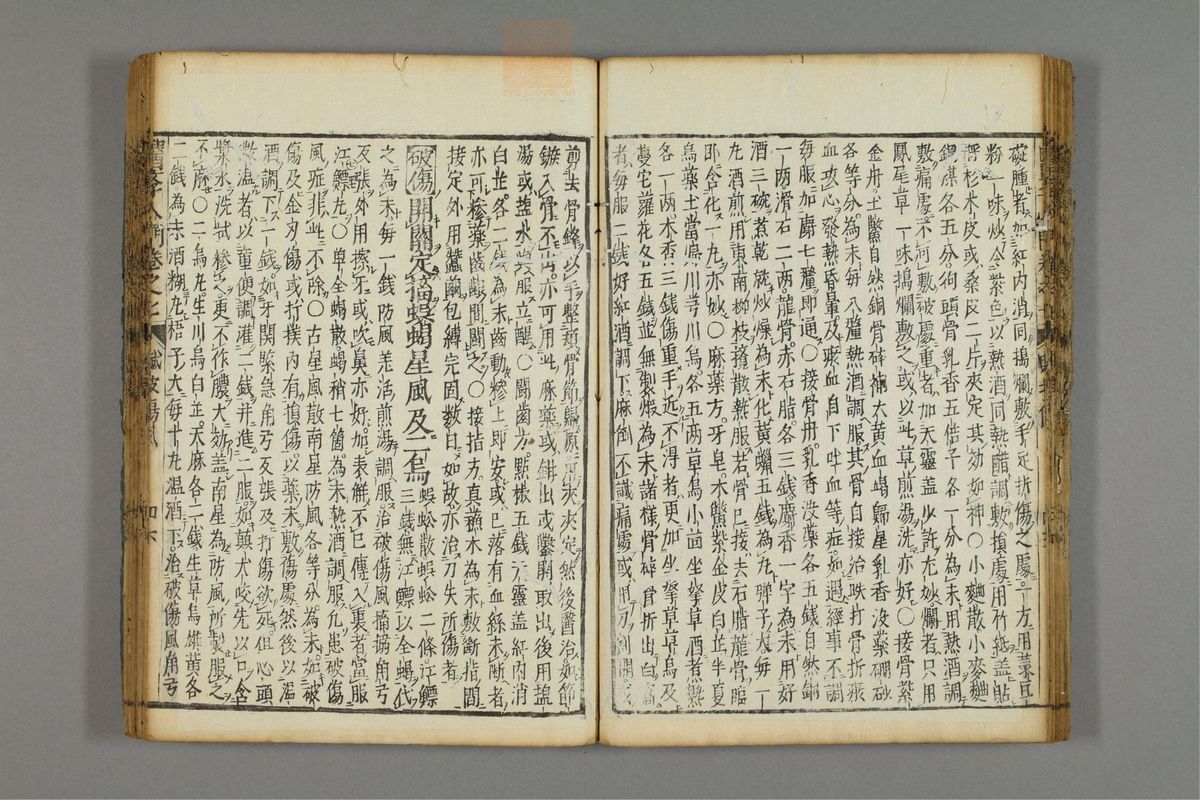 碇腫者加紅内消同搗爛敷手足折傷之處一方用菉豆
粉一味炒令茶色以熱酒同熱醋調敷損處用竹紙盖貼
將杉木皮或桑皮二片夾定其効如神〇小麵散小麥麵
鍋煤各五分狗頭骨乳香五倍子各一分為末用熱酒調
敷痛處不可敷破處重者加天靈盖少許尤妙爛者只用
鳳星草一味搗爛敷之或以此草煎湯洗亦好〇接骨紫
金丹土鱉自然銅骨碎補大黄血竭歸尾乳香没藥硼砂
各等分為末每八釐熱酒調服其骨自接治跌打骨折瘀
血攻心發熱昏暈及瘀血自下吐血等症如遇經事不調
每服加麝七釐即通〇接骨丹乳香没藥各五錢自然銅
一兩滑石二兩龍骨赤石脂各三錢麝香一字為末用好
酒三碗煮乾就炒燥為末化黄蠟五錢為丸彈子大每一
丸酒煎用東南柳枝攪散熱服若骨已接去石脂龍骨臨
卧含化一丸亦妙〇麻藥方牙皂木鱉紫金皮白芷半夏
烏藥土當歸川芎川烏各五兩草烏小茴坐拏草酒煮熟
各一兩木香三錢傷重手近不得者更加坐拏草草烏及
蔓陀蘿花各五錢並無製煆為末諸様骨碎骨折出臼窩
者每服二錢好紅酒調下麻倒不識痛處或用刀割開或
剪去骨鋒以手整頓骨節歸原用夾夾定然後醫治如箭
鏃入骨不出亦可用此麻藥或鉗出或鑿開取出後用塩
湯或盐水與服立醒〇閧齒方點椒五錢天靈盖紅内消
白芷各二錢為末齒動糝上即安或已落有血絲未断者
亦可糝藥齒齦間閧之〇接指方真蘇木為末敷斷指間
接定外用蠶繭包縛完固数日如故亦治刀矢所傷者
破傷開關定搐蜈蝎星風及二烏蜈蚣散蜈蚣二條江鰾
三錢無江鰾以全蝎代
之為末每一錢防風羌活煎湯調服治破傷風搐搦角弓
反張外用擦牙或吹鼻亦好如表觧不已傳入裏者當服
江鰾丸〇单全蝎散蝎稍七箇為末熱酒調服凡患破傷
風症非此不除〇古星風散南星防風各等分為末如破
傷及金刃傷或打撲内有損傷以藥末敷傷處然後以温
酒調下一錢如牙關緊急角弓反張及打傷欲死但心頭
微温者以童便調灌二錢并進二服如癲犬咬先以口含
漿水洗拭糝之更不作膿大効盖南星為防風所製服之
不麻〇二烏丸生川烏白芷天麻各二錢生草烏雄黄各
一錢為末酒糊丸梧子大每十丸温酒下治破傷風角弓